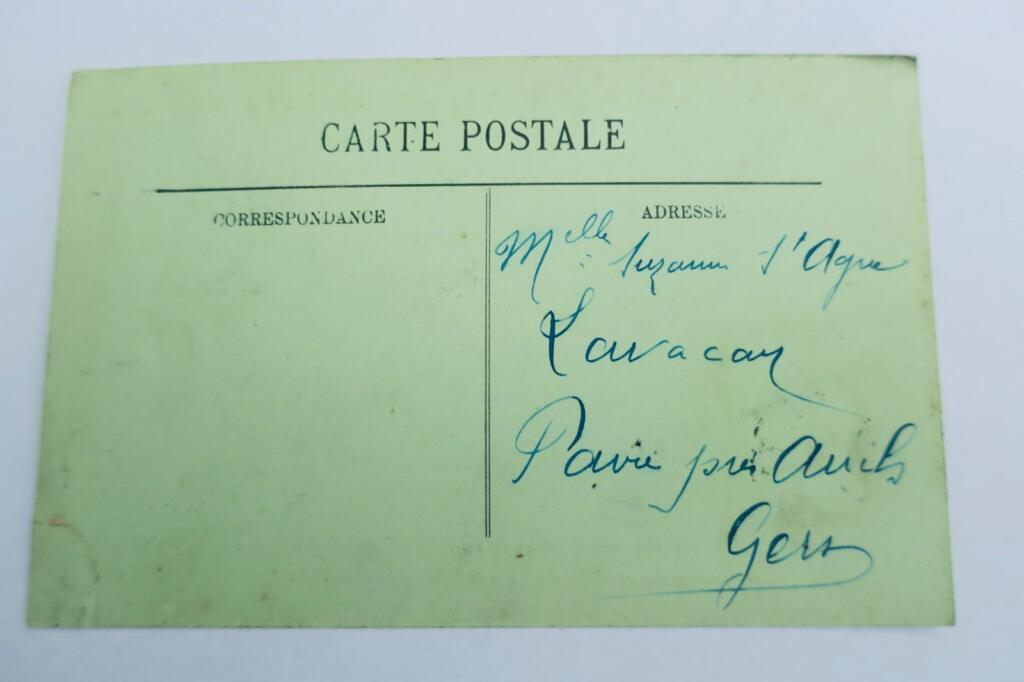 CARTE POSTALE
CORRESPONDANCE
ADRESSE
Melle Suzanne S'Agne
Lavacan
Pavie près Auch
Gers